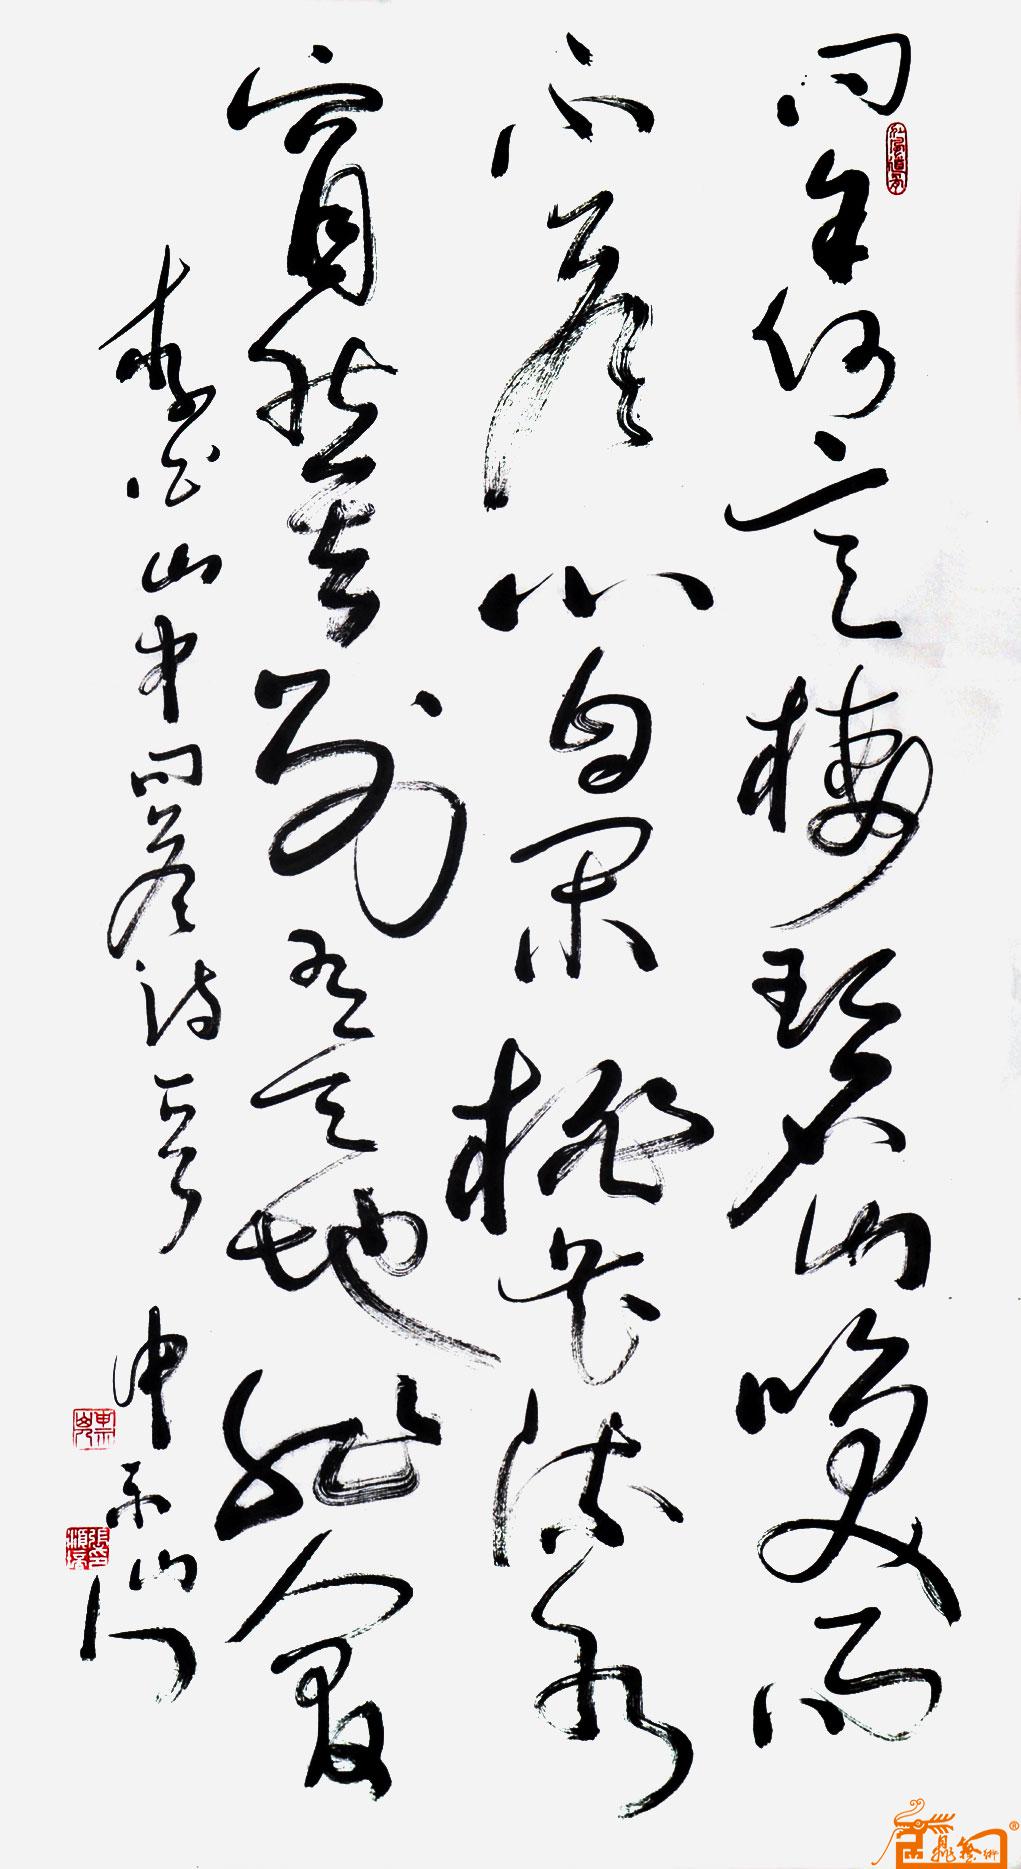 问余何意棲碧山笑而
不答心自闲桃花流水
窅然去别有天地非人间
李白山中问答诗一首